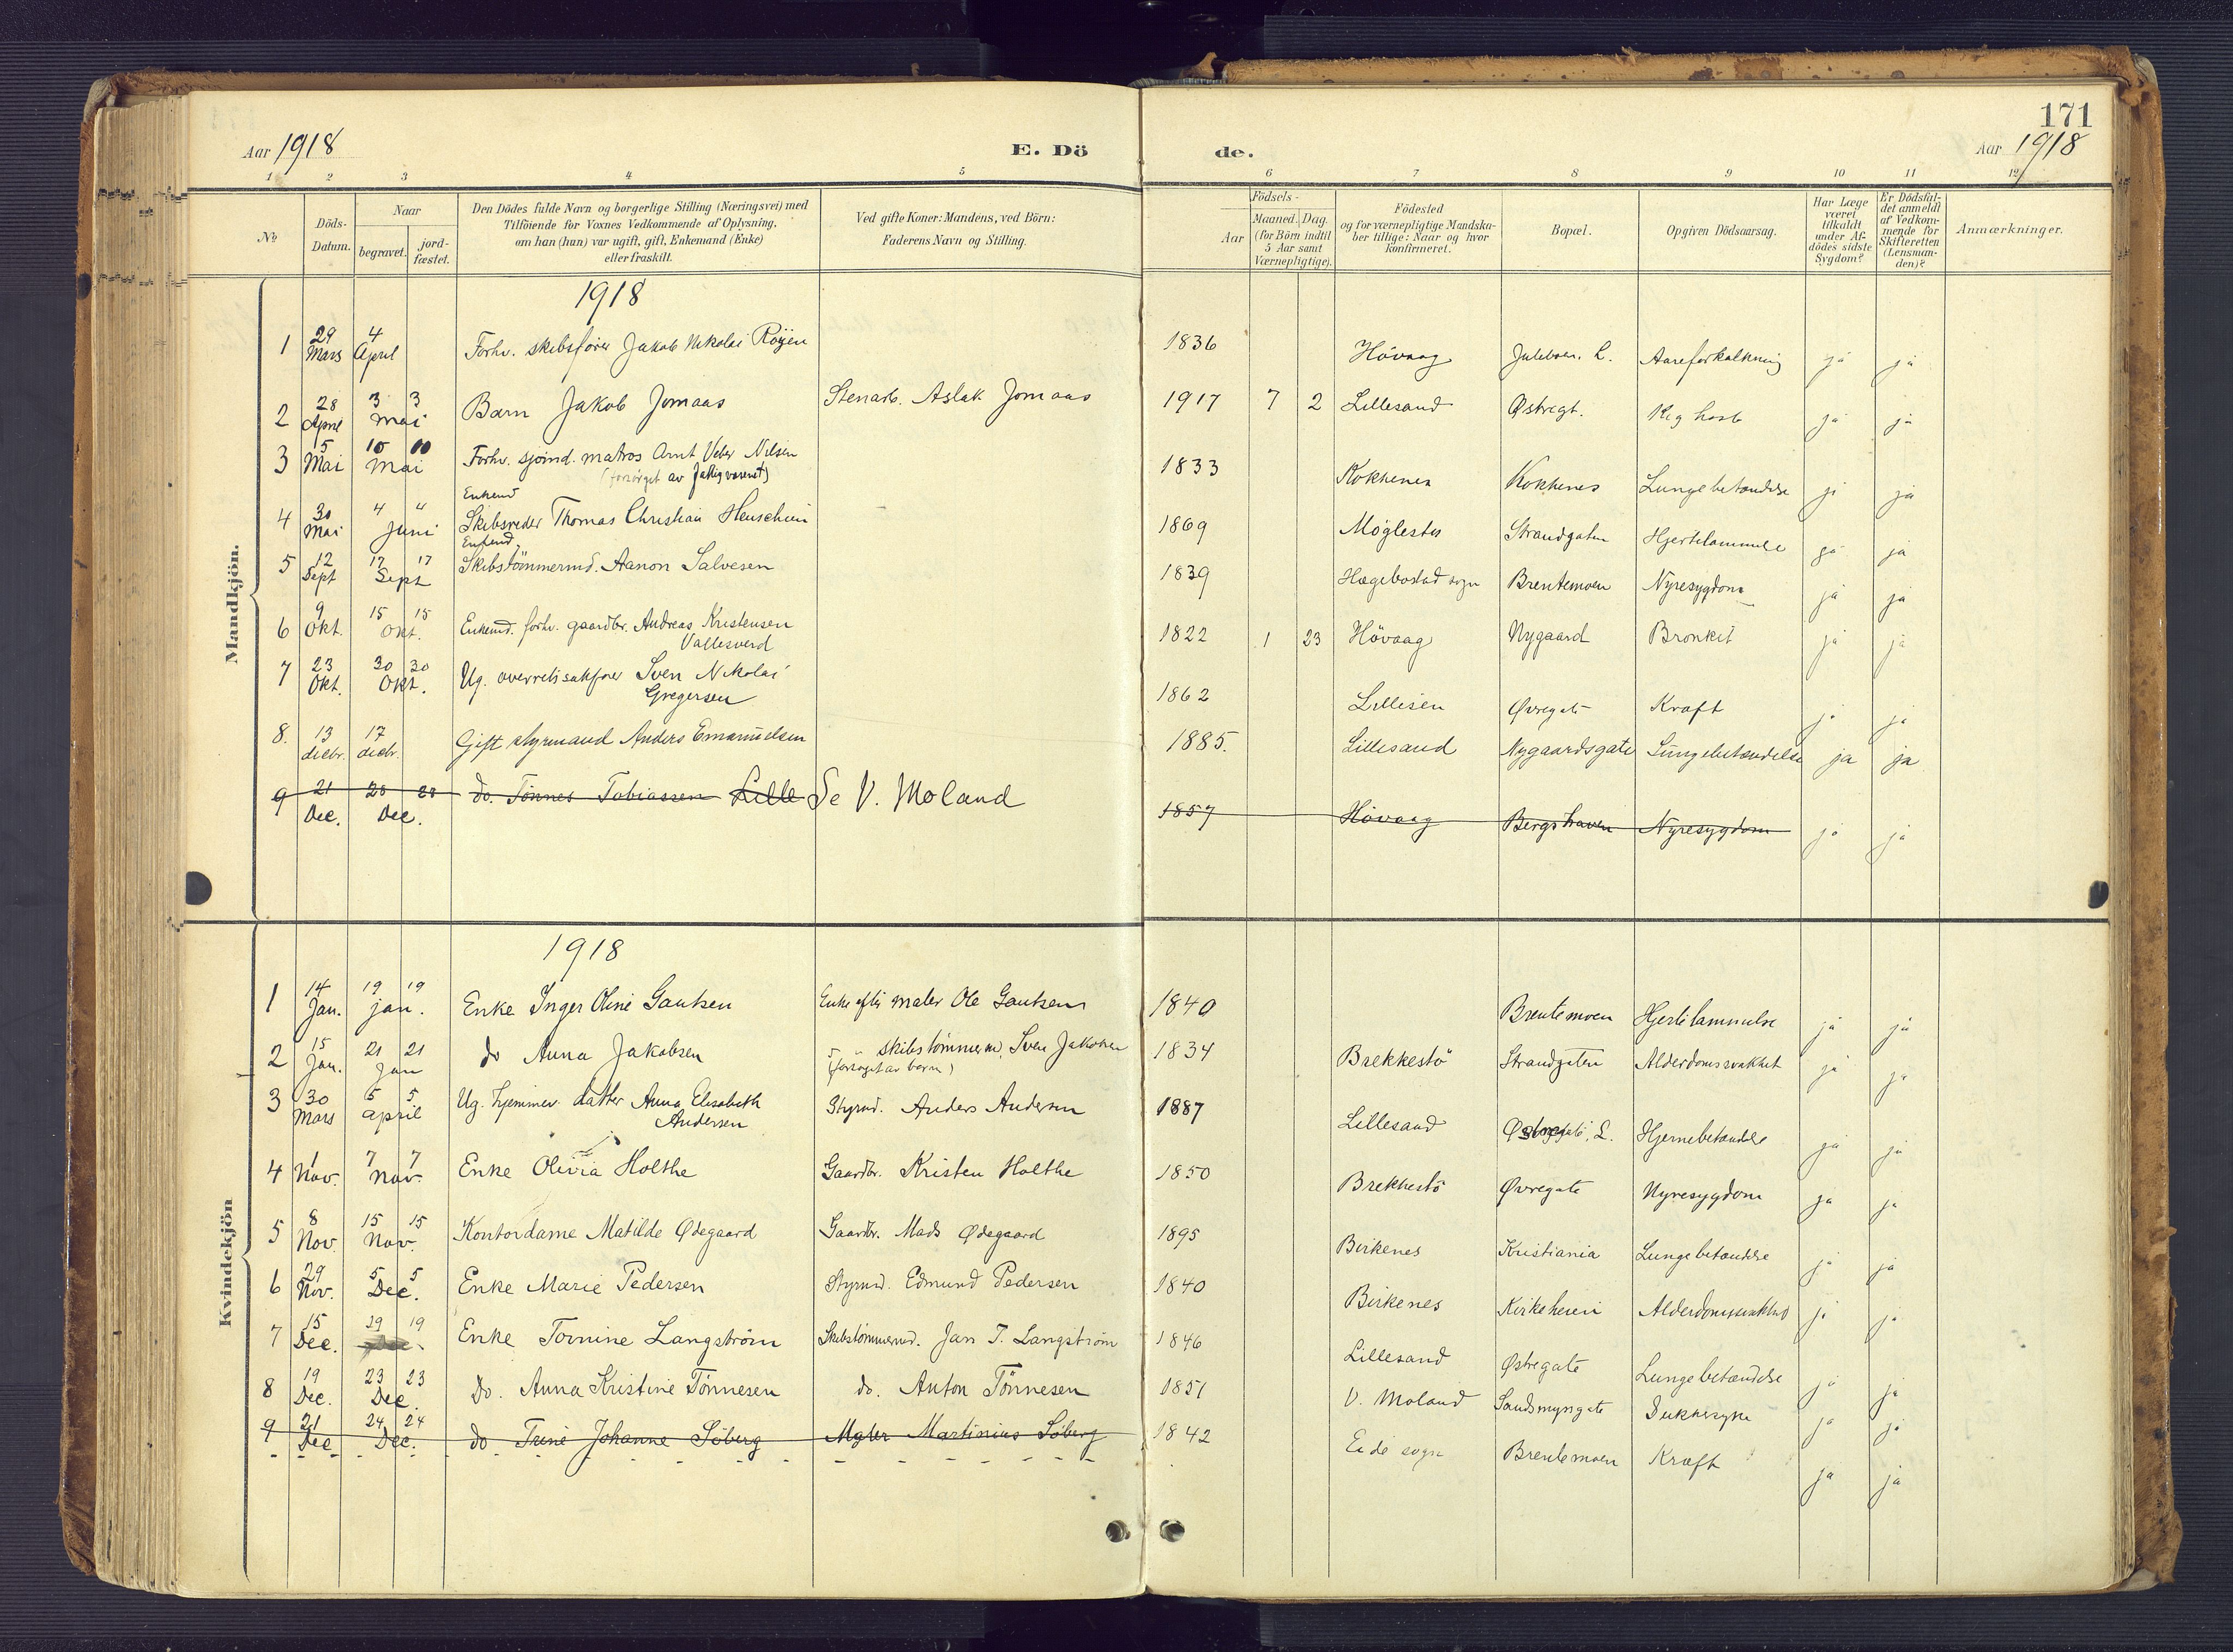 171
Aar 1918
E. Dö
de.
Aar 1918
1 2 3 4 5 6 7 8 9 10 11 12
No
Döds-Datum.
Naar
begravet.
jord-fæstet.
Den Dödes fulde Navn og borgerlige Stilling (Næringsvei) med
Tilföiende for Voxnes Vedkommende af Oplysning,
om han (hun) var ugift, gift, Enkemand (Enke)
eller fraskilt.
Ved gifte Koner: Mandens, ved Börn:
Faderens Navn og Stilling.
Födsels-
Aar
Maaned. Dag.
(for Börn indtil
5 Aar samt
Værnepligtige).
Födested
og for værnepligtige Mandska-
ber tillige: Naar og hvor
konfirmeret.
Bopæl.
Opgiven Dödsaarsag.
Har Læge
været
tilkaldt
under Af-
dödes sidste
Sygdom?
Er Dödsfal-
det anmeldt
af Vedkom-
mende for
Skifteretten
(Lensman-
den)?
Anmærkninger.
Mandkjön.
1918
1 29 Mars 4 April Forhv. skibsfører Jakob Nikolai Röyen 1836 Hövaag L. Aareforkalkning ja ja
2 28 April 3 3 mai Barn Jakob Jomaas Stenarb. Aslak Jomaas 1917 7 2 Lillesand Østregt. Kighoste ja ja
3 5 Mai 10 10 Mai Forhv. sjömd. matros Arnt Nilsen
(forsörget av fattigvæsenet) 1833 Kokkenes Kokkenes Lungebetændelse ja ja
4 30 Mai 4 " Juni Enkemd
Skibsreder Thomas Christian Henschien 1869 Möglestu Strandgaten Hjertelammelse ja ja
5 12 Sept 17 17 Sept Enkemd.
Skibstömmermd. Aanon Salvesen 1839 Hægebostad sogn Brentemoen Nyresygdom ja ja
6 9 Okt. 15 15 Okt. Enkemd. forhv. gaardbr. Andreas Kristensen
Vallesverd 1822 1 23 Hövaag Nygaard Bronkit ja ja
7 23 Okt. 30 30 Okt. Ug. overretssakfører Sven Nikolai
Gregersen 1862 Øvregate Kræft ja ja
8. 13 decbr. 17 decbr. Gift styrmand Anders Emanuelsen 1885. Lillesand Nygaardsgate Lungebetændelse ja ja
9 21 Dec. 28 28 Dec. do. Tönnes Tobiassen Lille Se V. Moland 1857 Hövaag Bergshaven Nyresygdom ja ja
Kvindekjön
1918
1 14 Jan. 19 19 jan. Enke Inger Oline Gautsen Enke efter maler Ole Gautsen 1840 Brentemoen Hjertelammelse ja ja
2 15 Jan. 21 21 Jan do Anna Jakobsen skibstömmerm. Sven Jakobsen
(forsörget av barn) 1834 Brekkestö Strandgaten Alderdomssvakhet ja ja
3 30 Mars 5 5 april Ug. hjemmev. datter Anna Elisabeth
Andersen Styrmd. Anders Andersen 1887 Lillesand L. Hjernebetændelse ja ja
4 1 Nov. 7 7 Nov. Enke Olivia Holthe Gaardbr. Kristen Holthe 1850 Brekkestö Øvregate Nyresygdom ja ja
5 8 Nov. 15 15 Nov. Kontordame Matilde Ødegaard Gaardbr. Mads Ødegaard 1895 Birkenes Kristiania Lungebetændelse ja ja
6 29 Nov. 5 5 Dec. Enke Marie Pedersen Styrmd. Edmund Pedersen 1840 Birkenes Kirkeheien Alderdomssvakhed ja ja
7 15 Dec. 19 19 Enke Tomine Langström Skibstömmermd. Jan T. Langström 1846 Lillesand Østregate Lungebetændelse ja ja
8 19 Dec. 23 23 Dec. Do. Anna Kristine Tönnesen do. Anton Tönnesen 1851 V. Moland Sandsmyrgate Sukkersyke ja ja
9 21 Dec 24 24 Dec. do Trine Johanne Söberg Maler Martinius Söberg 1842 Eide sogn Brentemoen Kræft ja ja